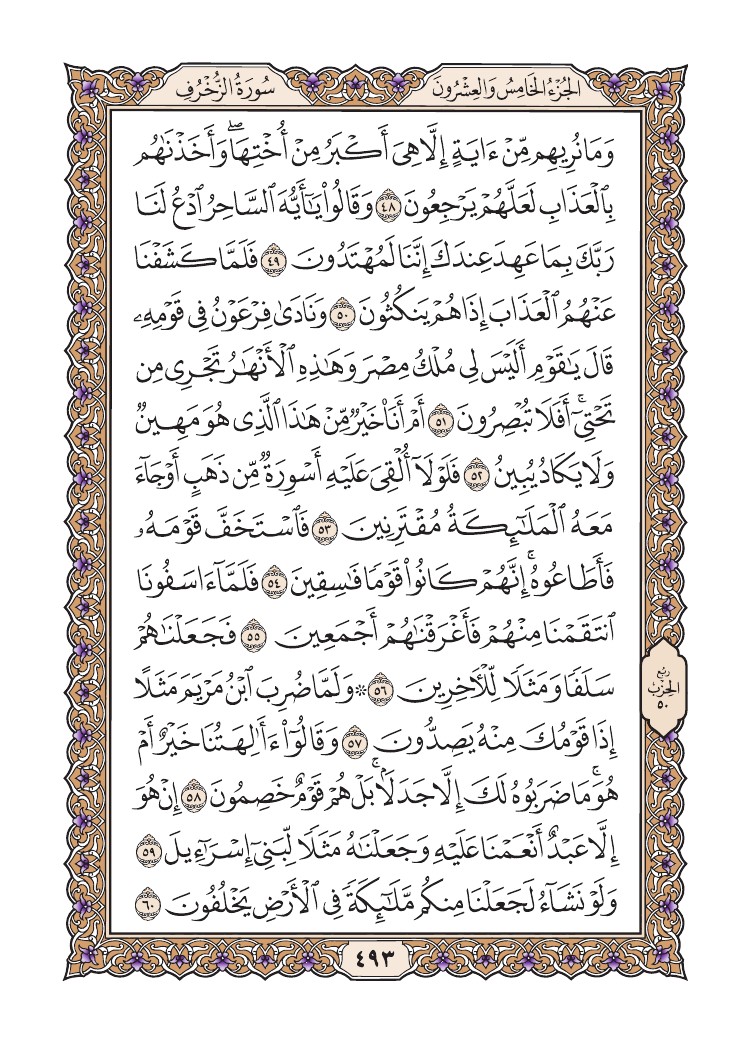 الجُزْءُ الخَامِسُ وَالعِشْرُونَ
سُورَةُ الزُّخْرُفِ
وَمَا نُرِيهِم مِّنْ ءَايَةٍ إِلَّا هِىَ أَكْبَرُ مِنْ أُخْتِهَاۖ وَأَخَذْنَٰهُم
بِٱلْعَذَابِ لَعَلَّهُمْ يَرْجِعُونَ ٤٨ وَقَالُوا۟ يَٰٓأَيُّهَ ٱلسَّاحِرُ ٱدْعُ لَنَا
رَبَّكَ بِمَا عَهِدَ عِندَكَ إِنَّنَا لَمُهْتَدُونَ ٤٩ فَلَمَّا كَشَفْنَا
عَنْهُمُ ٱلْعَذَابَ إِذَا هُمْ يَنكُثُونَ ٥٠ وَنَادَىٰ فِرْعَوْنُ فِى قَوْمِهِۦ
قَالَ يَٰقَوْمِ أَلَيْسَ لِى مُلْكُ مِصْرَ وَهَٰذِهِ ٱلْأَنْهَٰرُ تَجْرِى مِن
تَحْتِىٓۚ أَفَلَا تُبْصِرُونَ ٥١ أَمْ أَنَا۠ خَيْرٌ مِّنْ هَٰذَا ٱلَّذِى هُوَ مَهِينٌ
وَلَا يَكَادُ يُبِينُ ٥٢ فَلَوْلَآ أُلْقِىَ عَلَيْهِ أَسْوِرَةٌ مِّن ذَهَبٍ أَوْ جَآءَ
مَعَهُ ٱلْمَلَٰٓئِكَةُ مُقْتَرِنِينَ ٥٣ فَٱسْتَخَفَّ قَوْمَهُۥ
فَأَطَاعُوهُۚ إِنَّهُمْ كَانُوا۟ قَوْمًا فَٰسِقِينَ ٥٤ فَلَمَّآ ءَاسَفُونَا
ٱنتَقَمْنَا مِنْهُمْ فَأَغْرَقْنَٰهُمْ أَجْمَعِينَ ٥٥ فَجَعَلْنَٰهُمْ
سَلَفًا وَمَثَلًا لِّلْءَاخِرِينَ ٥٦ ۞ وَلَمَّا ضُرِبَ ٱبْنُ مَرْيَمَ مَثَلًا
إِذَا قَوْمُكَ مِنْهُ يَصِدُّونَ ٥٧ وَقَالُوٓا۟ ءَأَٰلِهَتُنَا خَيْرٌ أَمْ
هُوَۚ مَا ضَرَبُوهُ لَكَ إِلَّا جَدَلًۢاۚ بَلْ هُمْ قَوْمٌ خَصِمُونَ ٥٨ إِنْ هُوَ
إِلَّا عَبْدٌ أَنْعَمْنَا عَلَيْهِ وَجَعَلْنَٰهُ مَثَلًا لِّبَنِىٓ إِسْرَٰٓءِيلَ ٥٩
وَلَوْ نَشَآءُ لَجَعَلْنَا مِنكُم مَّلَٰٓئِكَةً فِى ٱلْأَرْضِ يَخْلُفُونَ ٦٠
ربع
الحزب
٥٠
٤٩٣